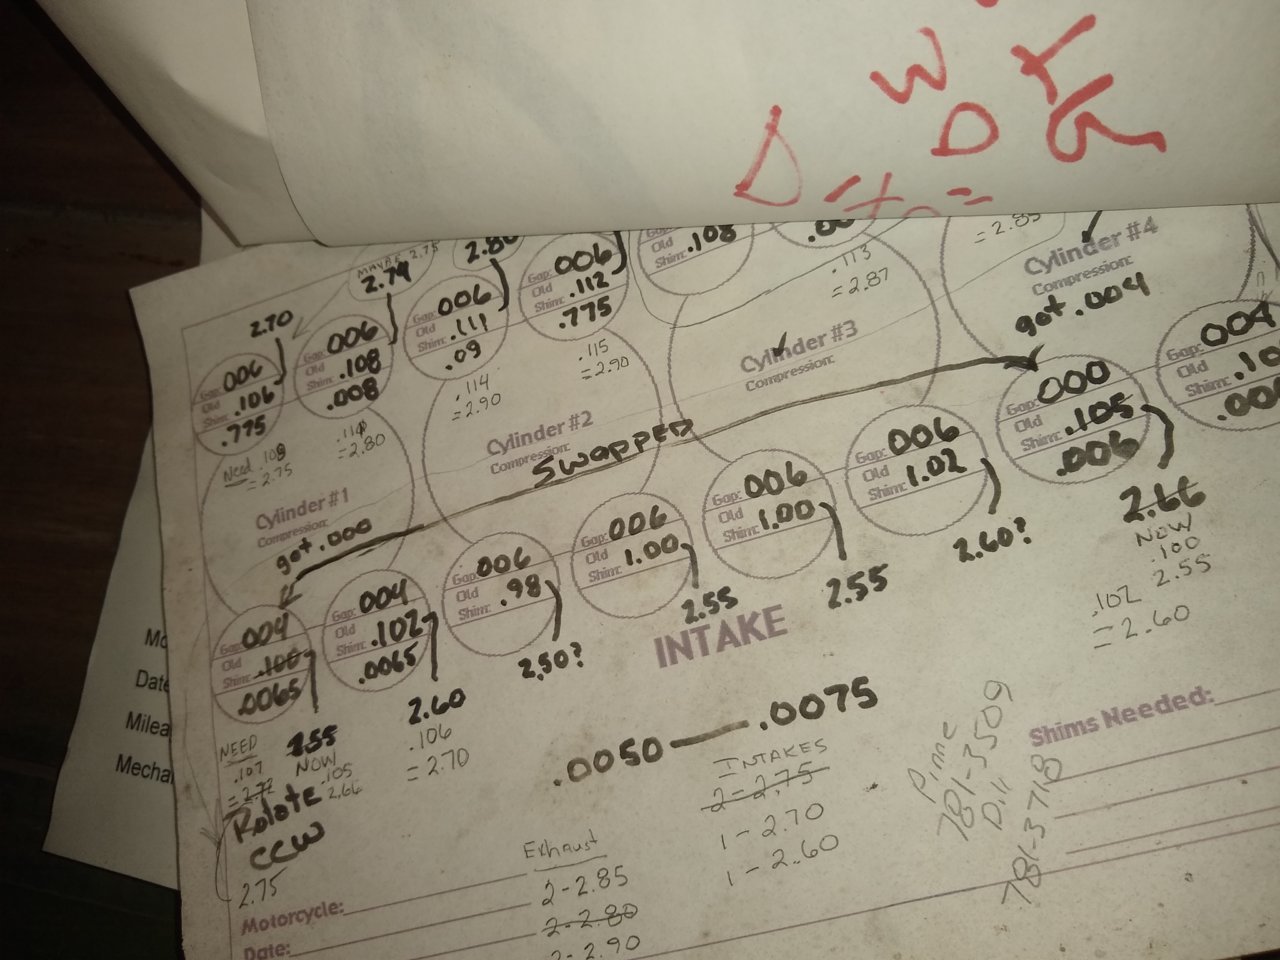 W
D
2.70
MAYBE 2.75
2.79
2.80
Gap: 006
Old
Shim: .106
.775
Gap: 006
Old
Shim: .108
.008
Gap: 006
Old
Shim: .111
.09
Gap: 006
Old
Shim: .112
.775
Shim: .108
.113
= 2.87
= 2.85
Need .108
= 2.75
.110
= 2.80
.114
= 2.90
.115
= 2.90
Cylinder #1
Compression:
got .000
Cylinder #2
Compression:
SWAPPED
Cylinder #3
Compression:
Cylinder #4
Compression:
got .004
Gap: 004
Old
Shim: .100
.0065
Gap: 004
Old
Shim: .102
.0065
Gap: 006
Old
Shim: .98
Gap: 006
Old
Shim: 1.00
Gap: 006
Old
Shim: 1.00
Gap: 006
Old
Shim: 1.02
Gap: 000
Old
Shim: .105
.006
Gap: 004
Old
Shim: .10
.00
2.55
2.60
2.50?
2.55
2.55
2.60?
2.66
NOW
.100
2.55
.102
= 2.60
INTAKE
NEED
.107
= 2.72
NOW
.105
2.66
.106
= 2.70
Rotate
CCW
2.75
.0050 — .0075
INTAKES
2-2.75
1-2.70
1-2.60
Exhaust
2-2.85
2-2.80
2-2.90
781-3509
781-3718
Shims Needed:
Motorcycle:
Date:
Mo
Date
Milea
Mecha